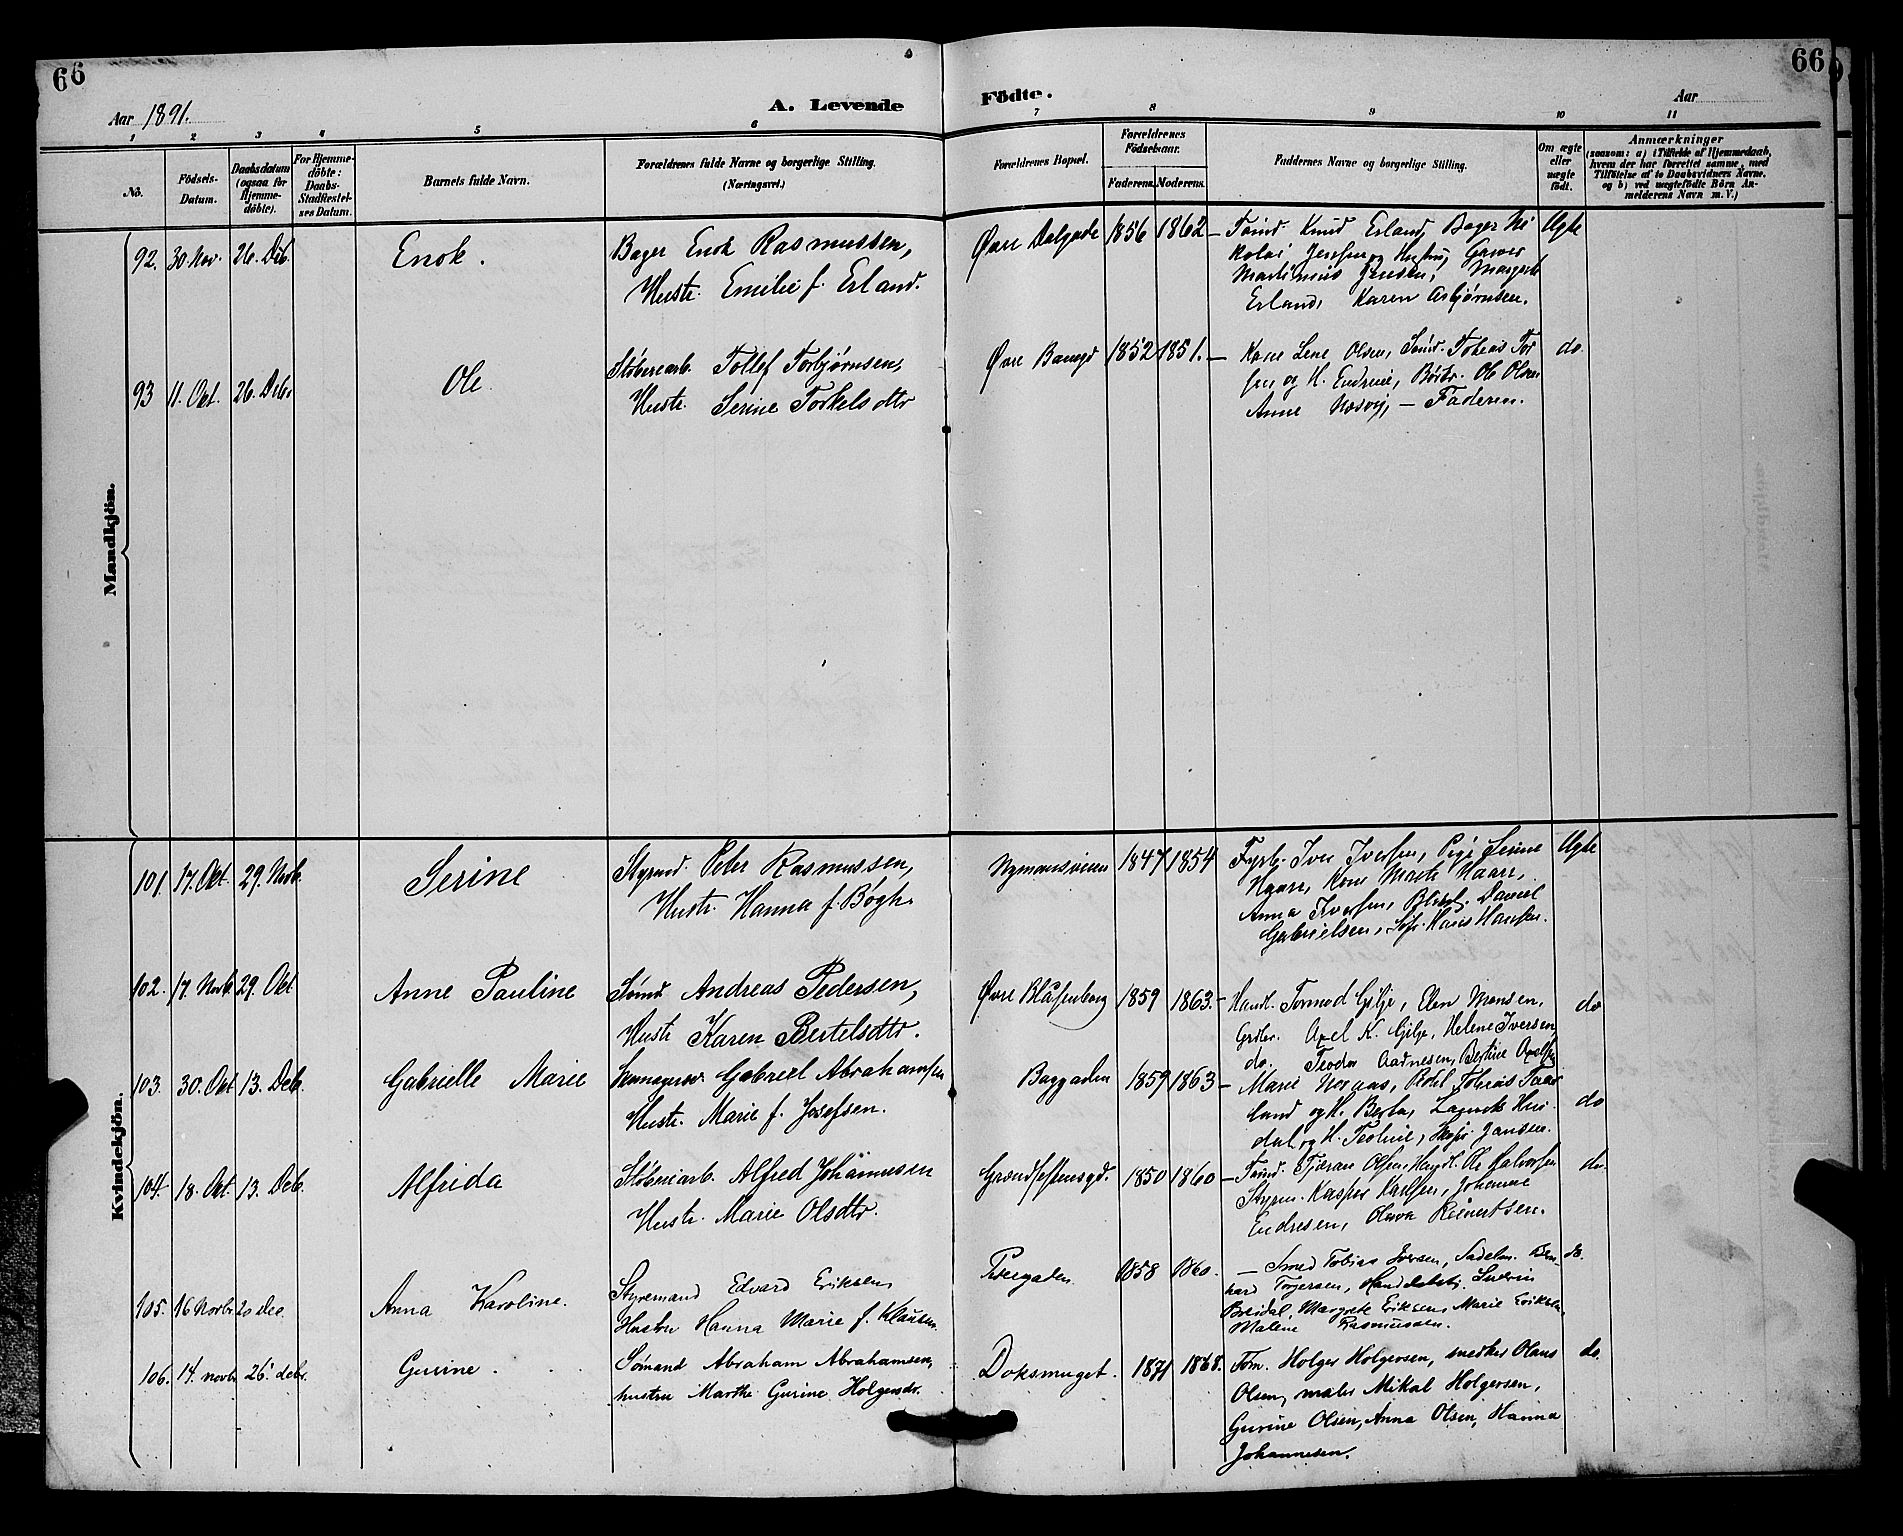 66
66
Aar 1891.
A. Levende
Födte.
Aar
1 2 3 4 5 6 7 8 9 10 11
No.
Födsels-
Datum.
Daabsdatum
(ogsaa for
Hjemme-
döbte).
For Hjemme-
döbte:
Daabs-
Stadfestel-
ses Datum.
Barnets fulde Navn.
Forældrenes fulde Navne og borgerlige Stilling.
(Næringsvei.)
Forældrenes Bopæl.
Forældrenes
Födselsaar.
Faderens. Moderens.
Faddernes Navne og borgerlige Stilling.
Om ægte
eller
uægte
födt.
Anmærkninger
(saasom: a) i Tilfælde af Hjemmedaab,
hvem der har forrettet samme, med
Tilföielse af to Daabsvidners Navne,
og b) ved uægtefödte Börn An-
melderens Navn m. V.)
Mandkjön.
92. 30 Nov. 26. Deb.
Enok.
Bager Enok Rasmussen,
Hustr. Emilie f. Erland.
Øvre Dalgade 1856 1862
– Tømd. Knud Erland, Bager Ni
kolai Jensen og Hustru, Garver
Martinius Jensen, Margrete
Erland, Karen Asbjørnsen.
Ægte
93 11. Okt. 26. Deb.
Ole
Støberiarb. Tollef Torbjørnsen,
Hustr. Serine Torkelsdtr
Øvre Bangd 1852 1851.
– Kone Lene Olsen, Sømd. Tobias Tor
sen og H. Endrine, Ole Olsen
Anne – Faderen.
do.
Kvindekjön.
101. 17. Okt. 29. Novb.
Serine
Styrmd. Peter Rasmussen,
Hustr. Hanna f. Bøgh.
Nymansveien 1847 1854
– Iver Iversen, Pige Serine
Haarr, Kone Marte Haarr,
Anna Iversen, Daniel
Gabrielsen, Hansen.
Ægte
102. 17. Novb. 29. Okt
Anne Pauline
Sømd. Andreas Pedersen,
Hustr Karen Bertelsdtr.
Øvre Blåsenborg 1859 1863.
– Handl. Tormod Gilje, Elen Monsen,
Grdbr. Axel K. Gilje, Helene Iversen
do. Teodor Aadnesen, Bertine Axelsen
do
103. 30. Okt 13. Deb.
Gabrielle Marie
Gabriel Abrahamsen
Hustr. Marie f. Josefsen.
Baggaden 1859 1863
– Marie Tobias Taar
land og H. Berta, Hus-
dal, og H. Teoline, Jansen.
do
104. 18. Okt. 13. Deb.
Alfrida
Støberiarb. Alfred Johannesen
Hustr. Marie Olsdtr.
1850 1860
– Tømd. Tjæran Olsen, Ole Halvorsen
Styrm. Kasper Karlsen, Johanne
Endresen, Olava Reinertsen.
do.
105. 16 Novbr 20 Dec.
Anna Karoline.
Styremand Edvard Eriksen,
Hustru Hanna Marie f. Klausen.
1858 1860.
– Smed Tobias Iversen, Sadelm. Bern-
hard Torgersen, Handelsbetj. Sverin
Breidal, Margrete Eriksen, Marie Eriksen,
Malene Rasmussen.
do.
106. 14. novbr 26. debr.
Gurine.
Sømand Abraham Abrahamsen,
hustru Marthe Gurine Holgersdr.
Doksmuget. 1871 1868.
Tøm. Holger Holgersen, snedker Olaus
Olsen, maler Mikal Holgersen,
Gurine Olsen, Anna Olsen, Hanna
Johannesen.
do.